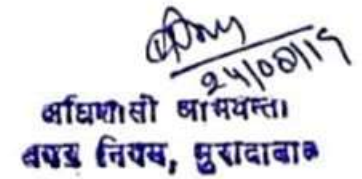 24/08/19
अधिशासी अभियन्ता
खण्ड नियम, मुरादाबाद